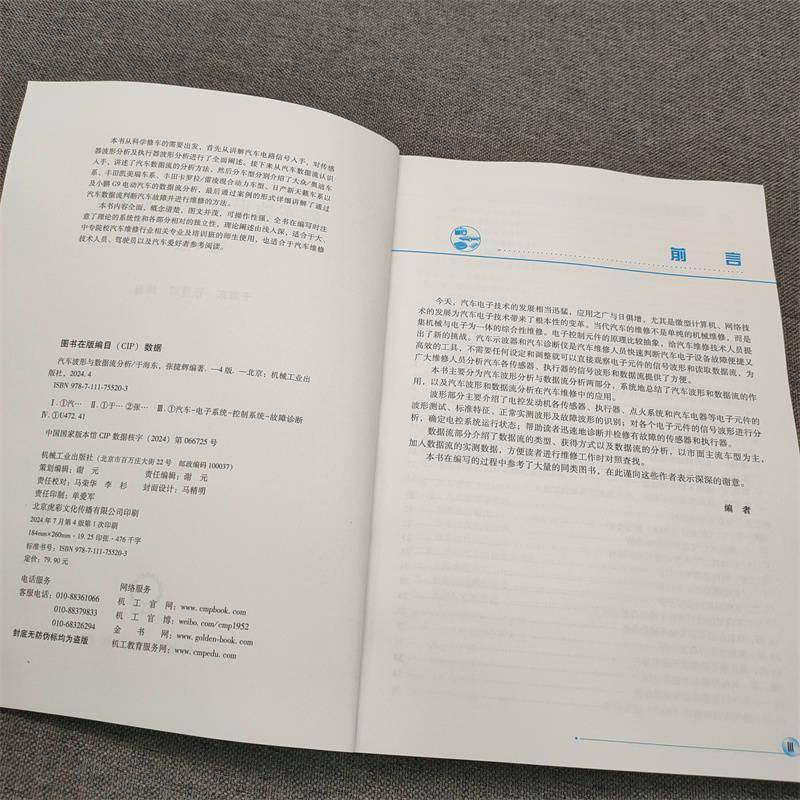 本书从科学修车的需要出发，首先从讲解汽车电路信号入手，对传感
器波形分析及执行器波形分析进行了全面阐述。接下来从汽车数据流认识
入手，讲述了汽车数据流的分析方法，然后分车型分别介绍了大众/奥迪车
系、丰田凯美瑞车系、丰田卡罗拉/雷凌混合动力车型、日产新天籁车系以
及小鹏 G9 电动汽车的数据流分析，最后通过案例的形式详细讲解了通过
汽车数据流判断汽车故障并进行维修的方法。
本书内容全面，概念清楚，图文并茂，可操作性强，全书在编写时注
意了理论的系统性和各部分相对的独立性，理论阐述由浅入深，适合于大、
中专院校汽车维修行业相关专业及培训班的师生使用，也适合于汽车维修
技术人员、驾驶员以及汽车爱好者参考阅读。
图书在版编目（CIP）数据
汽车波形与数据流分析/于海东，张捷辉编著. —4 版. —北京：机械工业出
版社，2024. 4
ISBN 978-7-111-75520-3
Ⅰ. ①汽… Ⅱ. ①于… ②张… Ⅲ. ①汽车-电子系统-控制系统-故障诊断
Ⅳ. ①U472. 41
中国国家版本馆 CIP 数据核字（2024）第 066725 号
机械工业出版社（北京市百万庄大街 22 号 邮政编码 100037）
策划编辑：谢 元 责任编辑：谢 元
责任校对：马荣华 李 杉 封面设计：马精明
责任印制：单爱军
北京虎彩文化传播有限公司印刷
2024 年 7 月第 4 版第 1 次印刷
184mm×260mm · 19. 25 印张 · 476 千字
标准书号：ISBN 978-7-111-75520-3
定价：79. 90 元
电话服务 网络服务
客服电话：010-88361066 机 工 官 网：www. cmpbook. com
010-88379833 机 工 官 博：weibo. com/cmp1952
010-68326294 金 书 网：www. golden-book. com
封底无防伪标均为盗版 机工教育服务网：www. cmpedu. com
前 言
今天，汽车电子技术的发展相当迅猛，应用之广与日俱增，尤其是微型计算机、网络技
术的发展为汽车电子技术带来了根本性的变革。当代汽车的维修不是单纯的机械维修，而是
集机械与电子为一体的综合性维修。电子控制元件的原理比较抽象，给汽车维修技术人员提
出了新的挑战。汽车示波器和汽车诊断仪是汽车维修人员快速判断汽车电子设备故障便捷又
高效的工具，不需要任何设定和调整就可以直接观察电子元件的信号波形和读取数据流，为
广大维修人员分析汽车各传感器、执行器的信号波形和数据流提供了方便。
本书主要分为汽车波形分析与数据流分析两部分，系统地总结了汽车波形和数据流的作
用，以及汽车波形和数据流分析在汽车维修中的应用。
波形部分主要介绍了电控发动机各传感器、执行器、点火系统和汽车电器等电子元件的
波形测试、标准特征、正常实测波形及故障波形的识别；对各个电子元件的信号波形进行分
析，确定电控系统运行状态；帮助读者迅速地诊断并检修有故障的传感器和执行器。
数据流部分介绍了数据流的类型、获得方式以及数据流的分析，以市面主流车型为主，
加入数据流的实测数据，方便读者进行维修工作时对照查找。
本书在编写的过程中参考了大量的同类图书，在此谨向这些作者表示深深的谢意。
编 者
Ⅲ